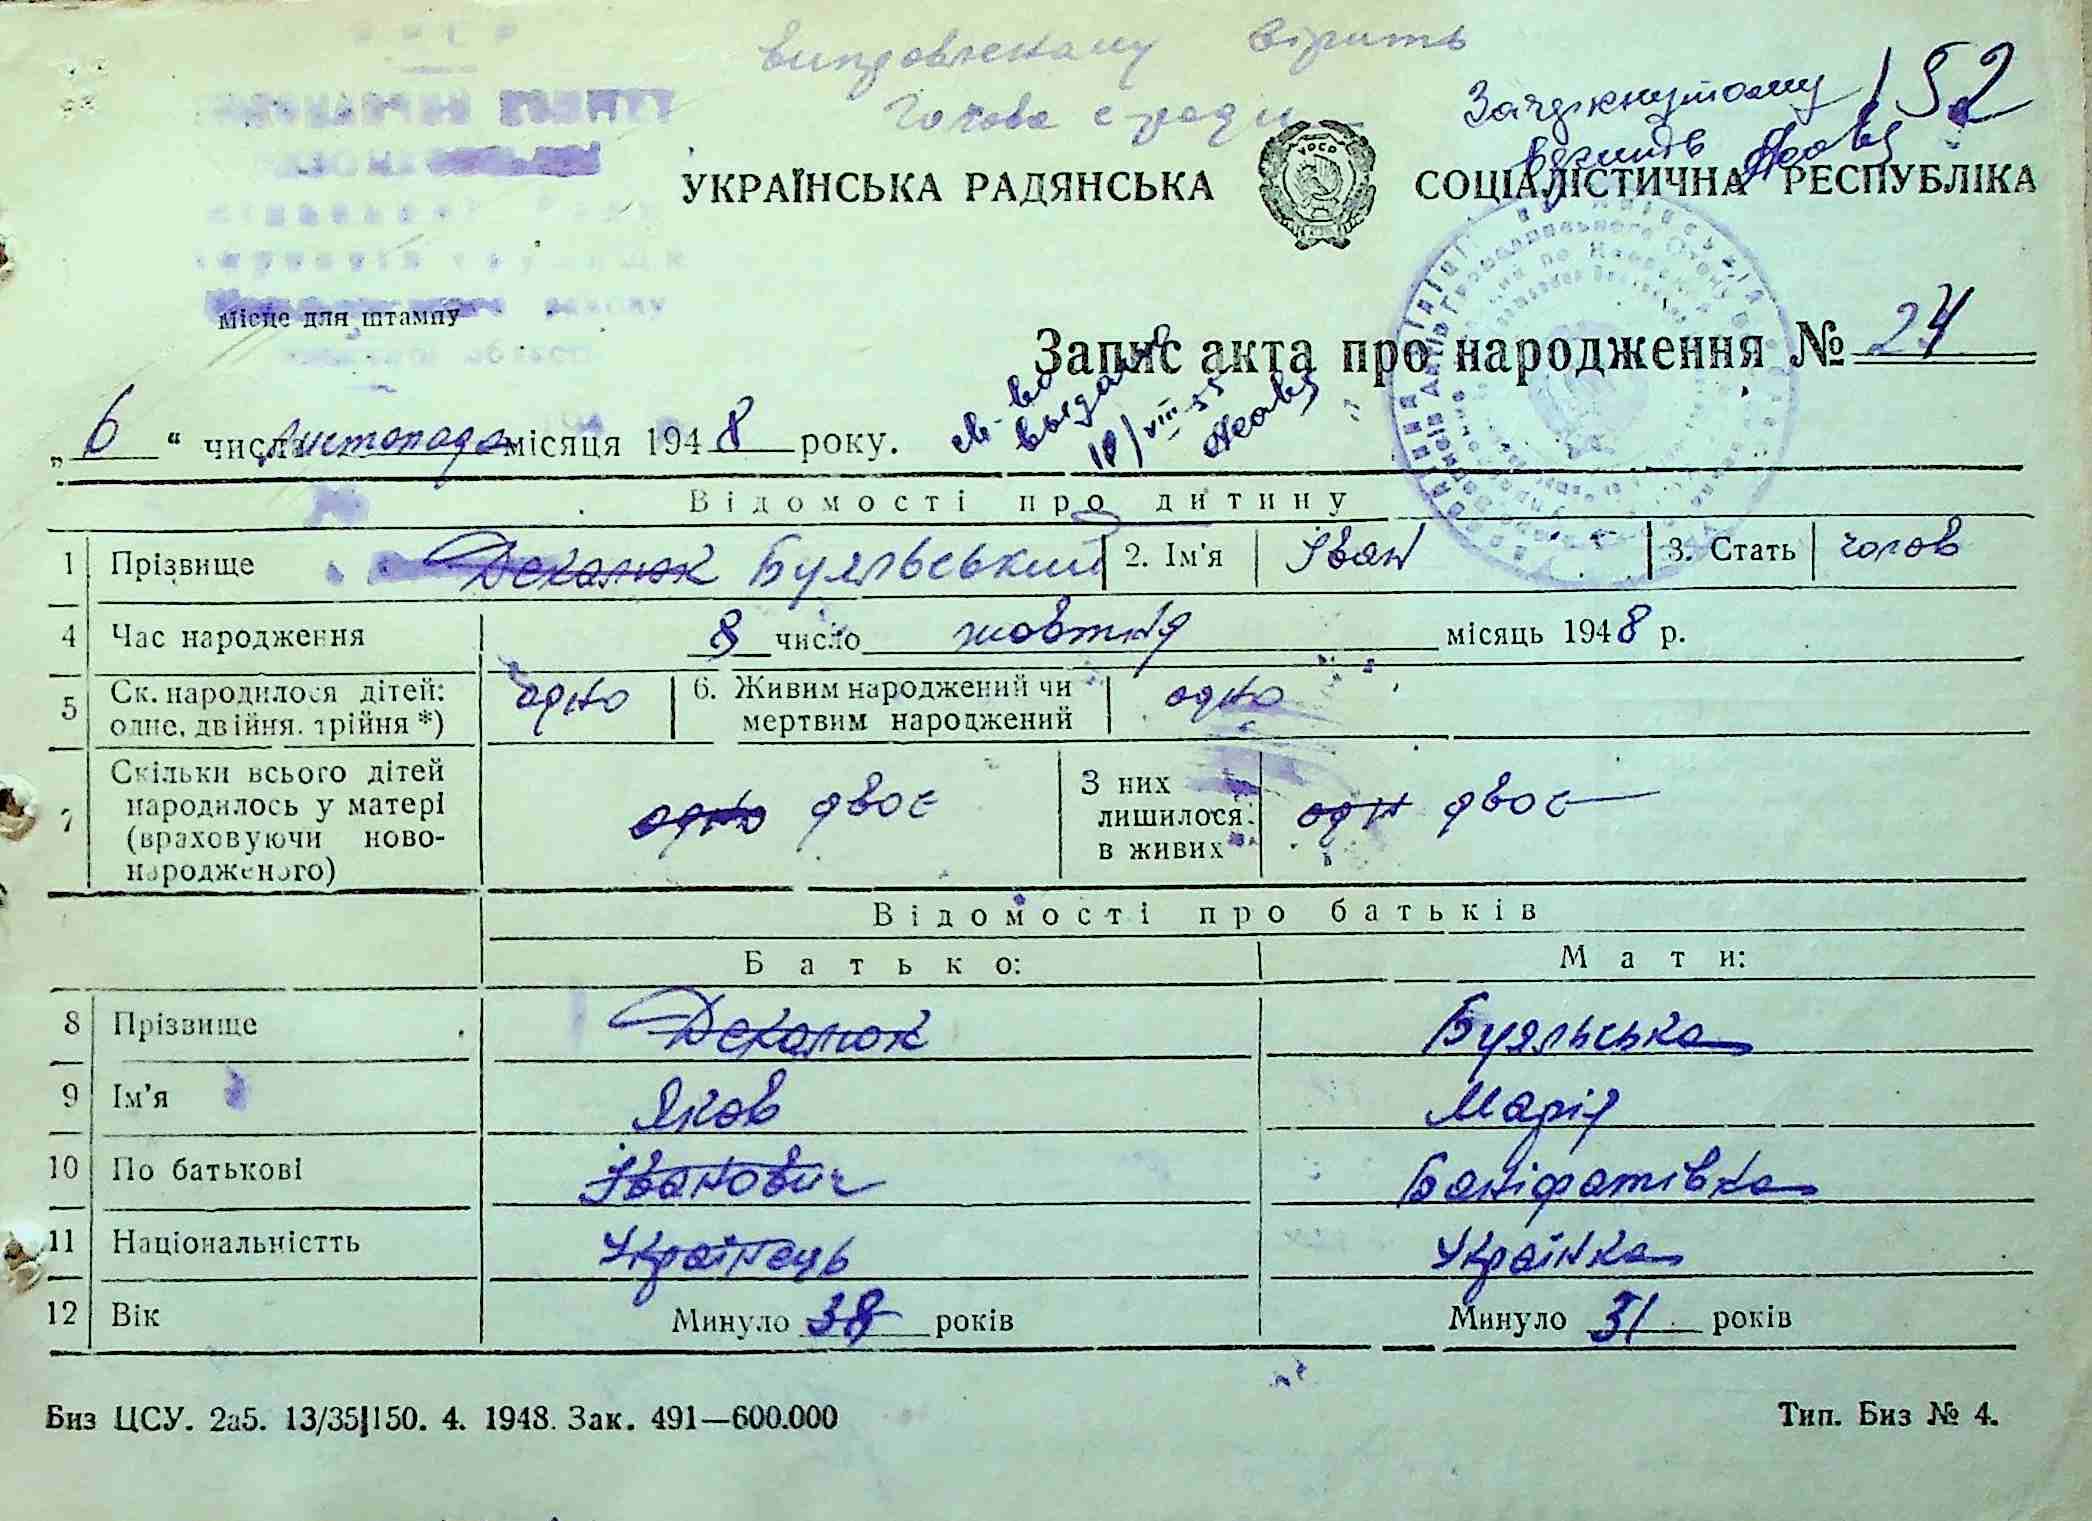 виправленому вірить
Голова с-ради
Закреслкнутому
152
УКРАЇНСЬКА РАДЯНСЬКА СОЦІАЛІСТИЧНА РЕСПУБЛІКА
УРСР
Місце для штампу
Запис акта про народження № 24
св-во
выдано
10/VIII-55
„ 6 “ числа листопада місяця 1948 року.
Відомості про дитину
1 Прізвище Декалюк Буяльський 2. Ім'я Іван 3. Стать чолов
4 Час народження 8 число жовтня місяць 1948 р.
5 Ск. народилося дітей: одне, двійня, трійня *) одно 6. Живим народжений чи мертвим народжений одно
7 Скільки всього дітей народилось у матері (враховуючи новонародженого) одно двоє З них лишилося в живих одн двоє
Відомості про батьків
Батько: Мати:
8 Прізвище Декалюк Буяльська
9 Ім'я Яков Марія
10 По батькові Іванович Баніфатівна
11 Національністть Українець Українка
12 Вік Минуло 38 років Минуло 31 років
Биз ЦСУ. 2а5. 13/35|150. 4. 1948. Зак. 491—600.000 Тип. Биз № 4.